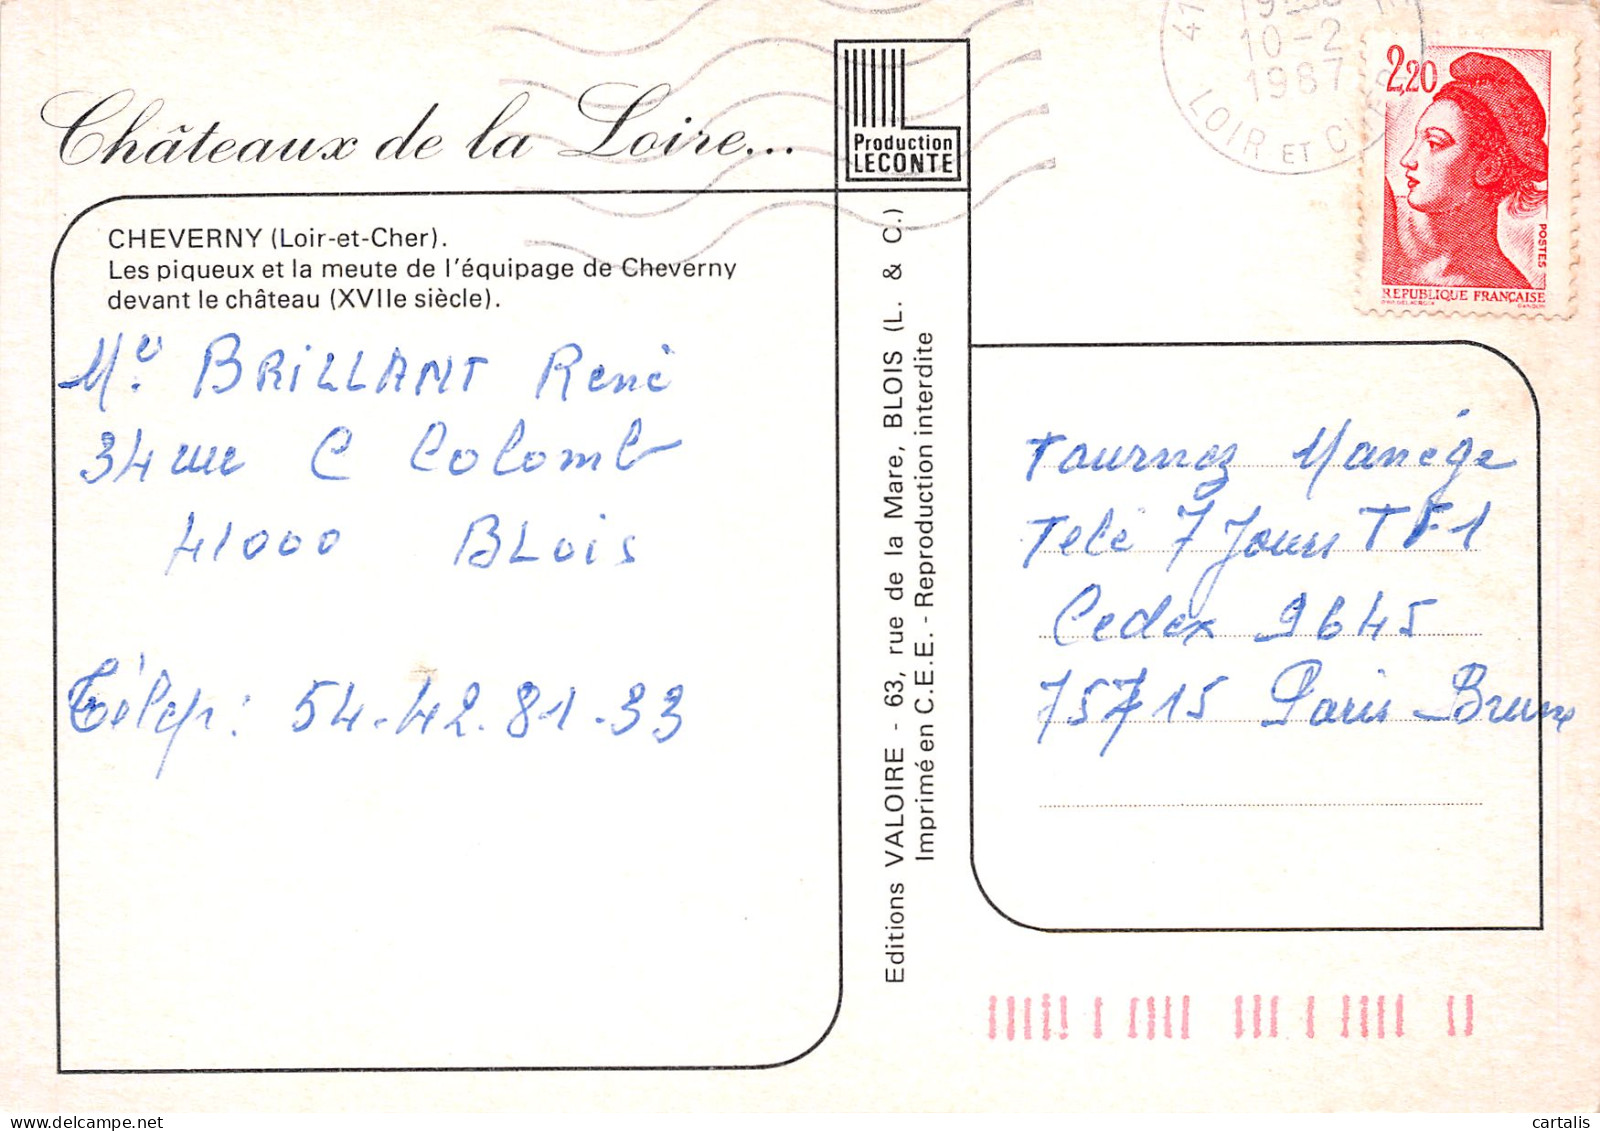 Châteaux de la Loire...
Production
LECONTE
CHEVERNY (Loir-et-Cher).
Les piqueux et la meute de l'équipage de Cheverny
devant le château (XVIIe siècle).
Mr BRILLANT René
34 rue C Colomb
41000 BLois
Télép: 54-42.81-33
Editions VALOIRE - 63, rue de la Mare, BLOIS (L. & C.)
Imprimé en C.E.E. - Reproduction interdite
41
10-2
1987
LOIR ET CHER
2,20
POSTES
REPUBLIQUE FRANÇAISE
Tournez Manège
Télé 7 Jours TF1
Cedex 9645
75715 Paris Brune
cartalis